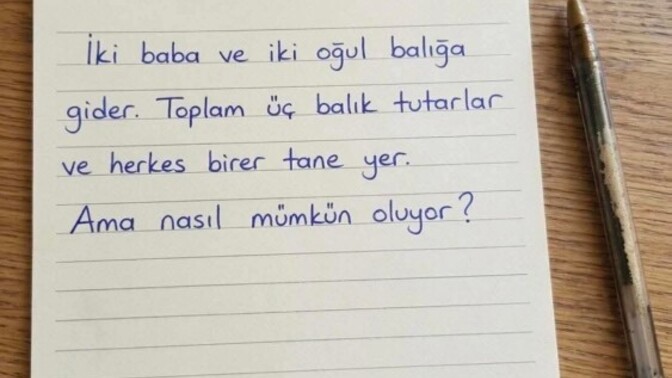 İki baba ve iki oğul balığa
gider. Toplam üç balık tutarlar
ve herkes birer tane yer.
Ama nasıl mümkün oluyor?